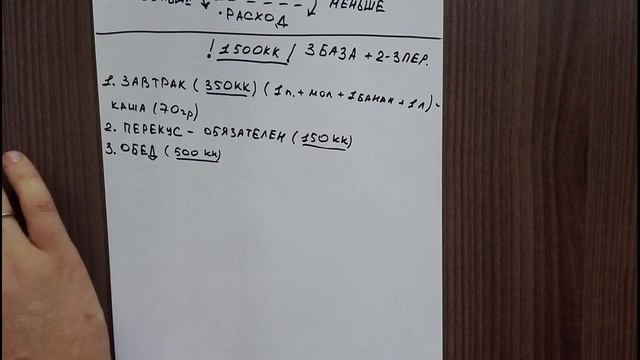 МЕНЬШЕ
• РАСХОД
! 1500КК / 3 БАЗА + 2-3 ПЕР.
1. ЗАВТРАК ( 350КК) ( 1 п. + МОЛ + 1 БАНАН + 1 Л ) -
КАША (70гр)
2. ПЕРЕКУС - ОБЯЗАТЕЛЕН ( 150 КК)
3. ОБЕД ( 500 КК)